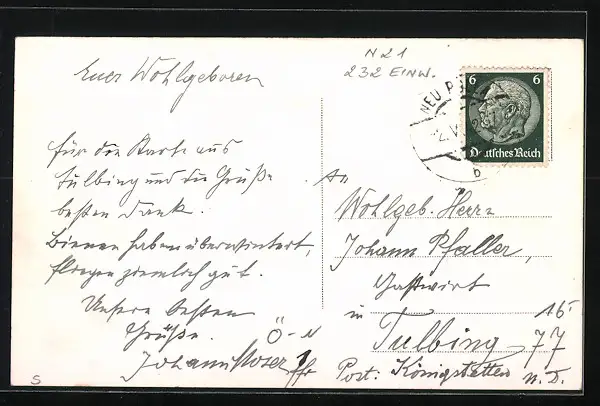 Euer Wohlgeboren
für die Karte aus
Tulbing und die Grüße
besten Dank.
Bienen haben überwintert,
fliegen ziemlich gut.
Unsere besten
Grüße.
Ö-N
Johann Moser
S
N21
232 EINW.
6 6
Deutsches Reich
NEU
b
An
Wohlgeb. Herrn
Johann Pfaller,
Gastwirt
in Tulbing 77
15-
Post: Königstetten
N. D.